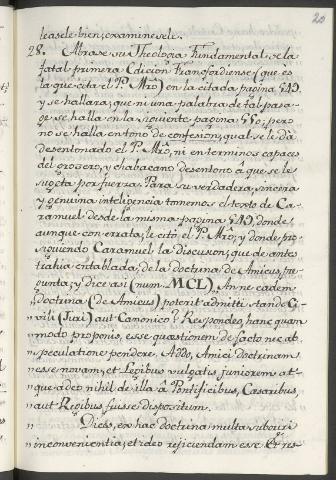 20
leasele bien, examinesele.
28. Abrase su Theologia Fundamental, se la
fatal primera Edicion Francfordiense (que es
la que cita el P. Mro) en la citada pagina 549.
y se hallarà, que ni una palabra de tal pasa-
ge se halla en la siguiente pagina 550; pero
no se halla en tono de confesion, qual se le dà
desentonado el P. Mro, ni en terminos capaces
del grosero, y chabacano desentono a que se le
sugeta por fuerza. Para su verdadera, sincera
y genuina inteligencia tomemos el texto de Ca-
ramuel desde la misma pagina 549, donde
aunque con errata, le citò el P. Mro, y donde pro-
siguiendo Caramuel la discusion, que de antes
trahia entablada, de la doctrina de Amicus, pre-
gunta, y dice asi (num. MCL). An ne eadem
„ doctrina (de Amicus) poterit admitti stando Ci-
vili (Juri) aut Canonico? Respondeo hanc quam
modo proponis, esse quaestionem de facto nec ab
„ speculatione pendere. Addo, Amici doctrinam
„ esse novam, et Legibus vulgatis juniorem at-
„ que adeo nihil de illa à Pontificibus, Caesaribus,
„ aut Regibus fuisse dispositum.
„ Dices, ex hac doctrina multa suboriri
„ inconvenientia, et ideo rejiciendam esse. Et res-